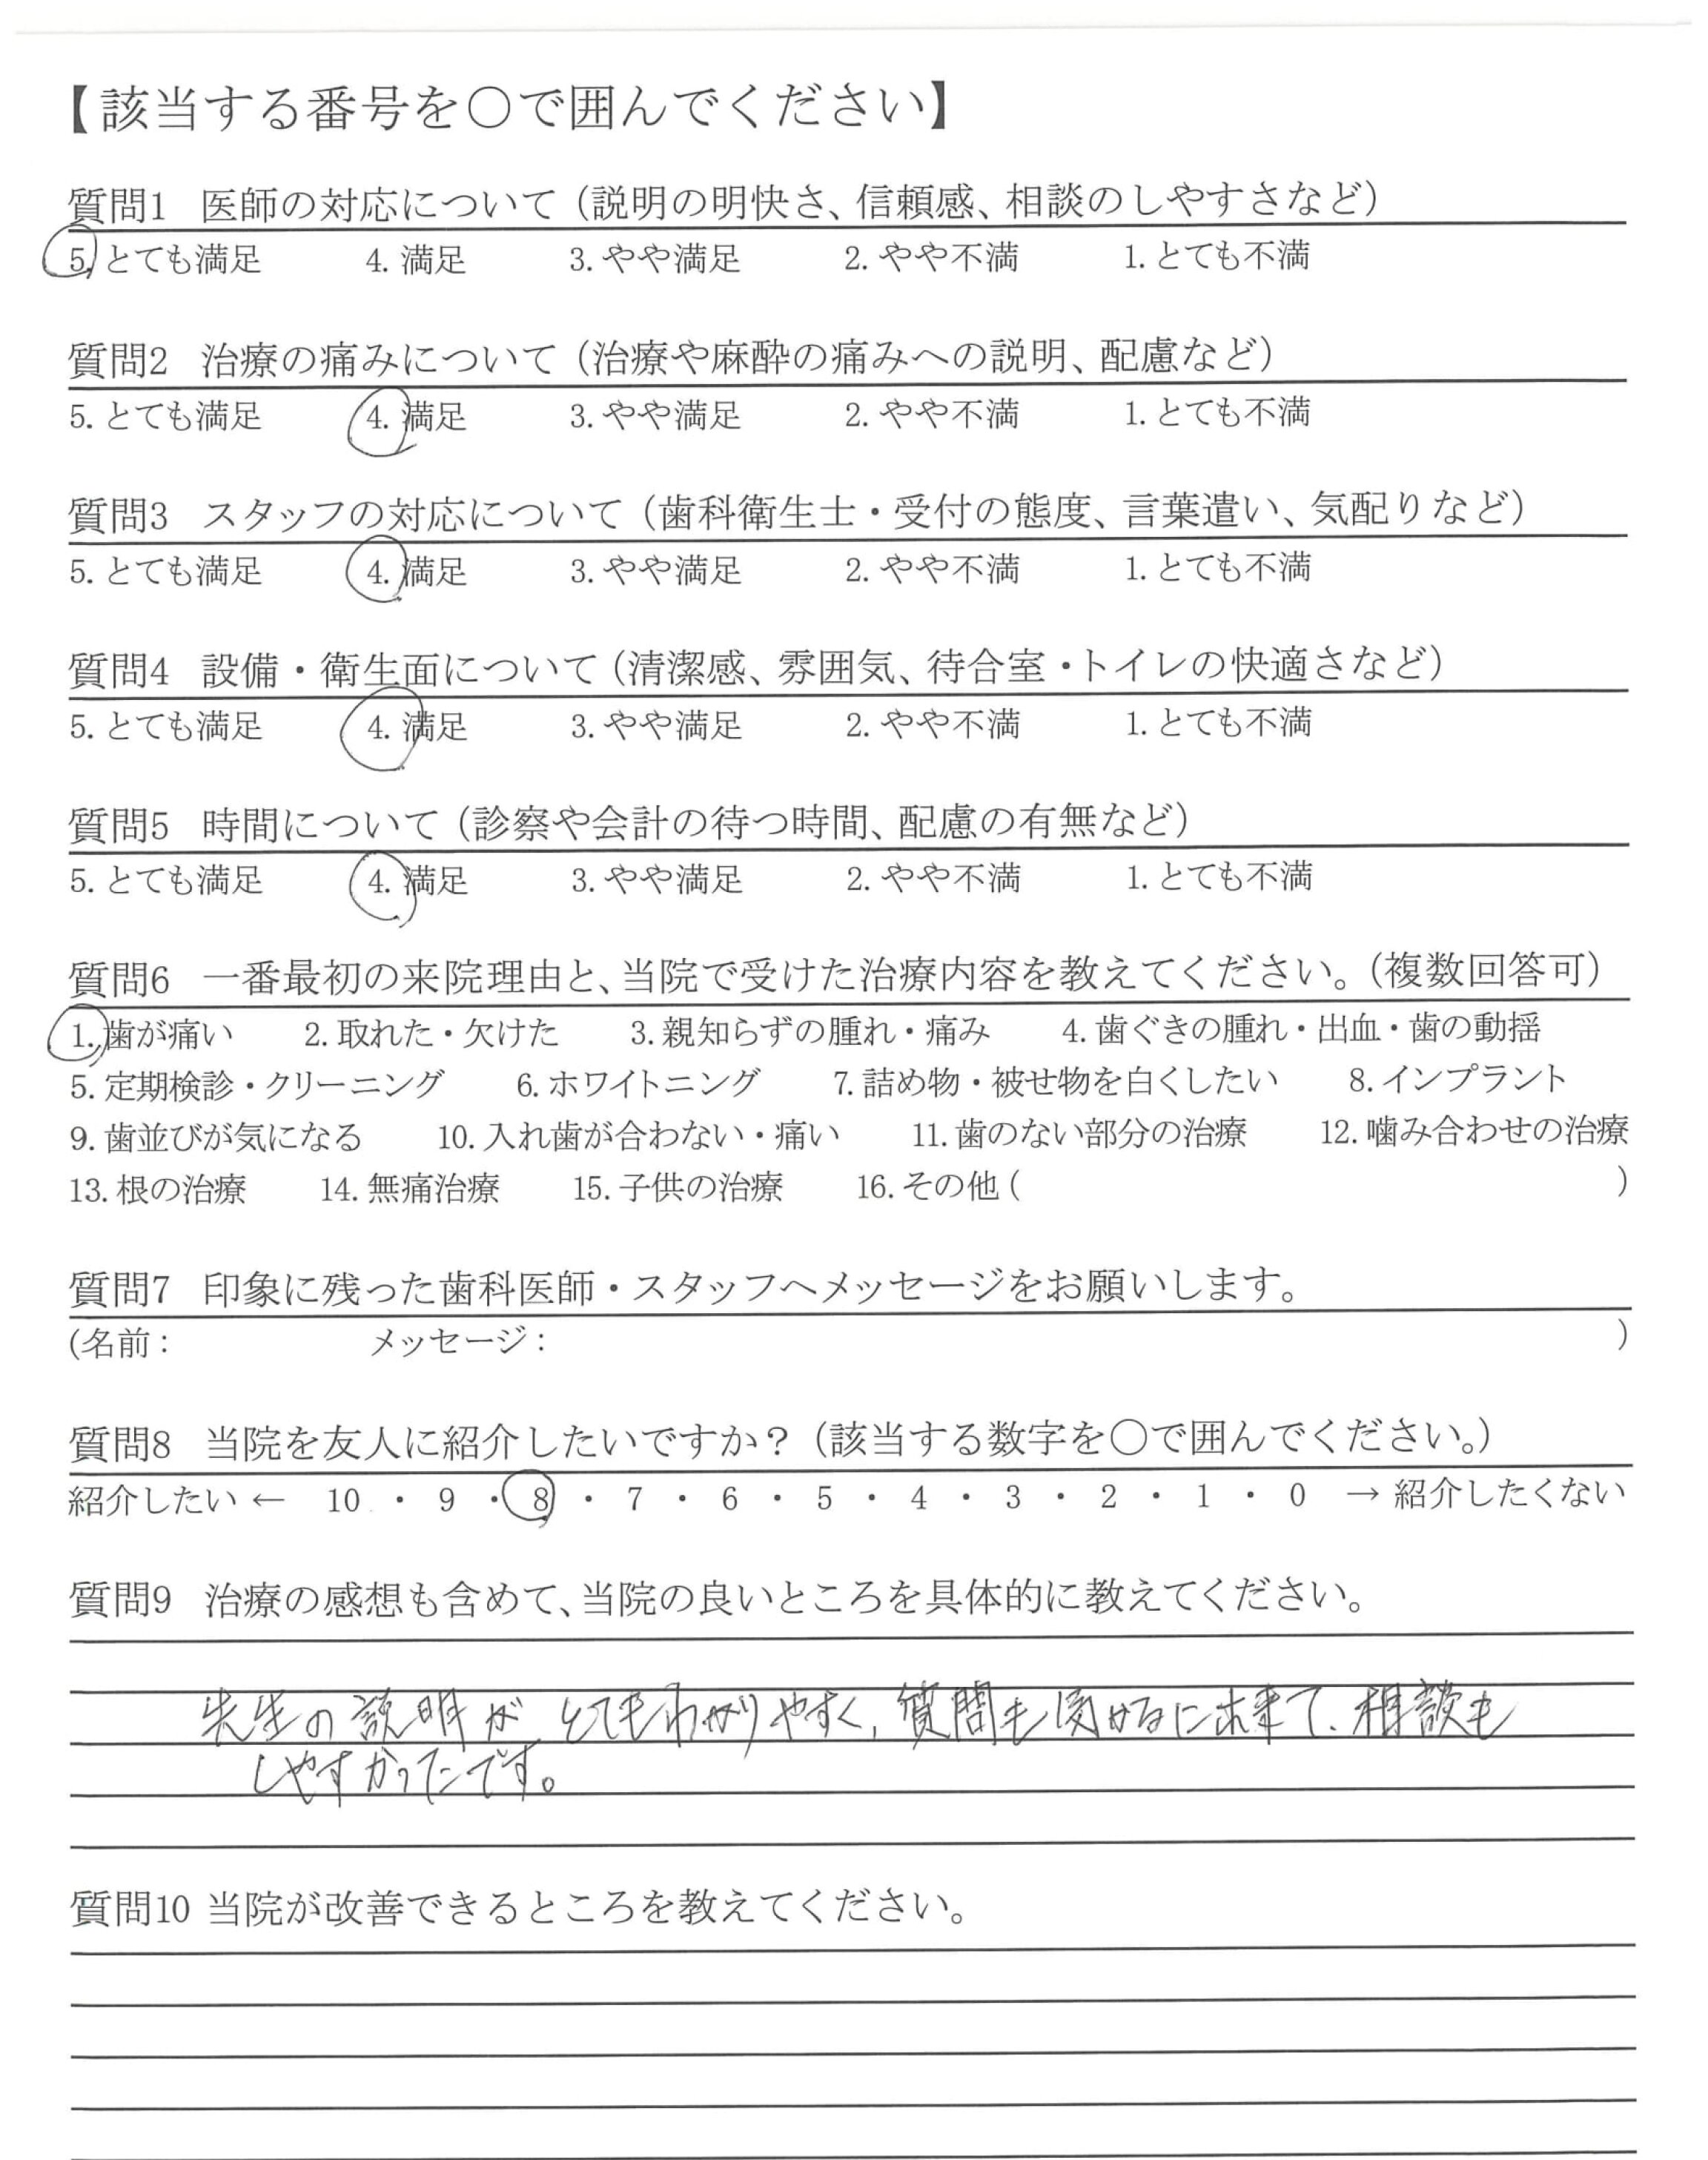 【該当する番号を○で囲んでください】
質問1 医師の対応について（説明の明快さ、信頼感、相談のしやすさなど）
5. とても満足 4. 満足 3. やや満足 2. やや不満 1. とても不満
質問2 治療の痛みについて（治療や麻酔の痛みへの説明、配慮など）
5. とても満足 4. 満足 3. やや満足 2. やや不満 1. とても不満
質問3 スタッフの対応について（歯科衛生士・受付の態度、言葉遣い、気配りなど）
5. とても満足 4. 満足 3. やや満足 2. やや不満 1. とても不満
質問4 設備・衛生面について（清潔感、雰囲気、待合室・トイレの快適さなど）
5. とても満足 4. 満足 3. やや満足 2. やや不満 1. とても不満
質問5 時間について（診察や会計の待つ時間、配慮の有無など）
5. とても満足 4. 満足 3. やや満足 2. やや不満 1. とても不満
質問6 一番最初の来院理由と、当院で受けた治療内容を教えてください。（複数回答可）
1. 歯が痛い 2. 取れた・欠けた 3. 親知らずの腫れ・痛み 4. 歯ぐきの腫れ・出血・歯の動揺
5. 定期検診・クリーニング 6. ホワイトニング 7. 詰め物・被せ物を白くしたい 8. インプラント
9. 歯並びが気になる 10. 入れ歯が合わない・痛い 11. 歯のない部分の治療 12. 噛み合わせの治療
13. 根の治療 14. 無痛治療 15. 子供の治療 16. その他 ( )
質問7 印象に残った歯科医師・スタッフへメッセージをお願いします。
(名前： メッセージ： )
質問8 当院を友人に紹介したいですか？（該当する数字を○で囲んでください。）
紹介したい ← 10 ・ 9 ・ 8 ・ 7 ・ 6 ・ 5 ・ 4 ・ 3 ・ 2 ・ 1 ・ 0 → 紹介したくない
質問9 治療の感想も含めて、当院の良いところを具体的に教えてください。
先生の説明が とてもわかりやすく、質問も気がるに出来て、相談も
しやすかったです。
質問10 当院が改善できるところを教えてください。